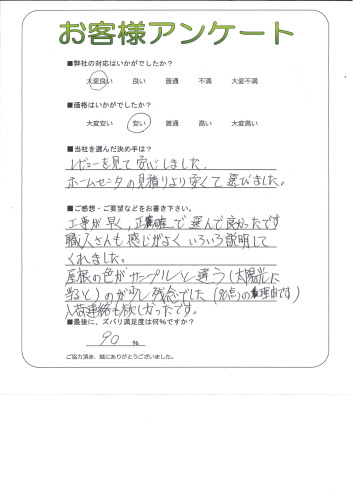 お客様アンケート
■弊社の対応はいかがでしたか?
大変良い 良い 普通 不満 大変不満
■価格はいかがでしたか?
大変安い 安い 普通 高い 大変高い
■当社を選んだ決め手は?
レビューを見て安心しました。
ホームセンタの見積りより安くて選びました。
■ご感想・ご要望などをお書き下さい。
工事が早く、正確で選んで良かったです
職人さんも感じがよくいろいろ説明して
くれました。
屋根の色がサンプルと違う(太陽光に
当ると)のが少し残念でした(90点の理由です)
入荷連絡も欲しかったです。
■最後に、ズバリ満足度は何%ですか?
90 %
ご協力頂き、誠にありがとうございました。